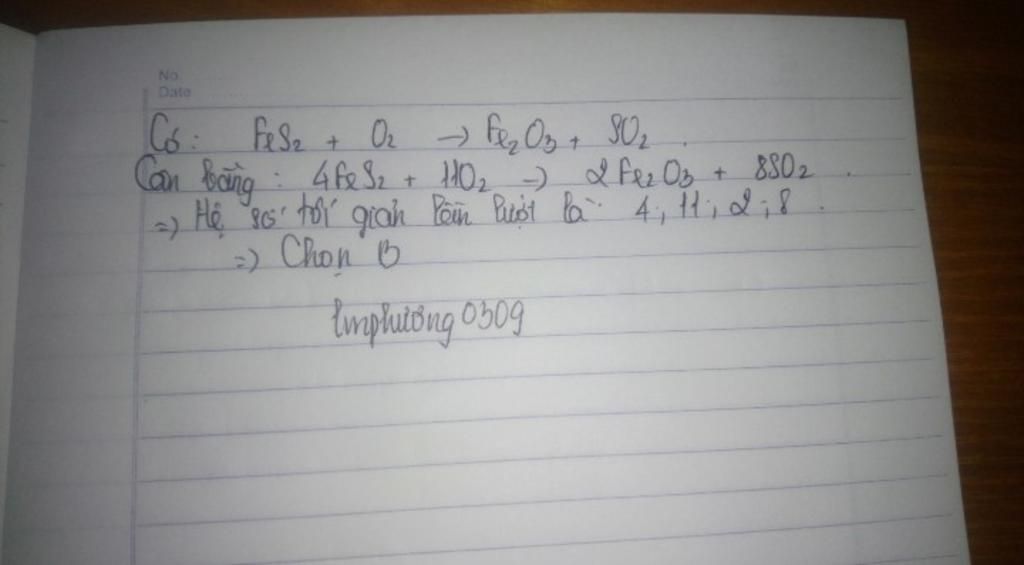 No
Date
Có: FeS₂ + O₂ → Fe₂O₃ + SO₂.
Cân bằng: 4FeS₂ + 11O₂ → 2Fe₂O₃ + 8SO₂.
=> Hệ số tối giản lần lượt là: 4; 11; 2; 8.
=> Chọn B
tmphương0309